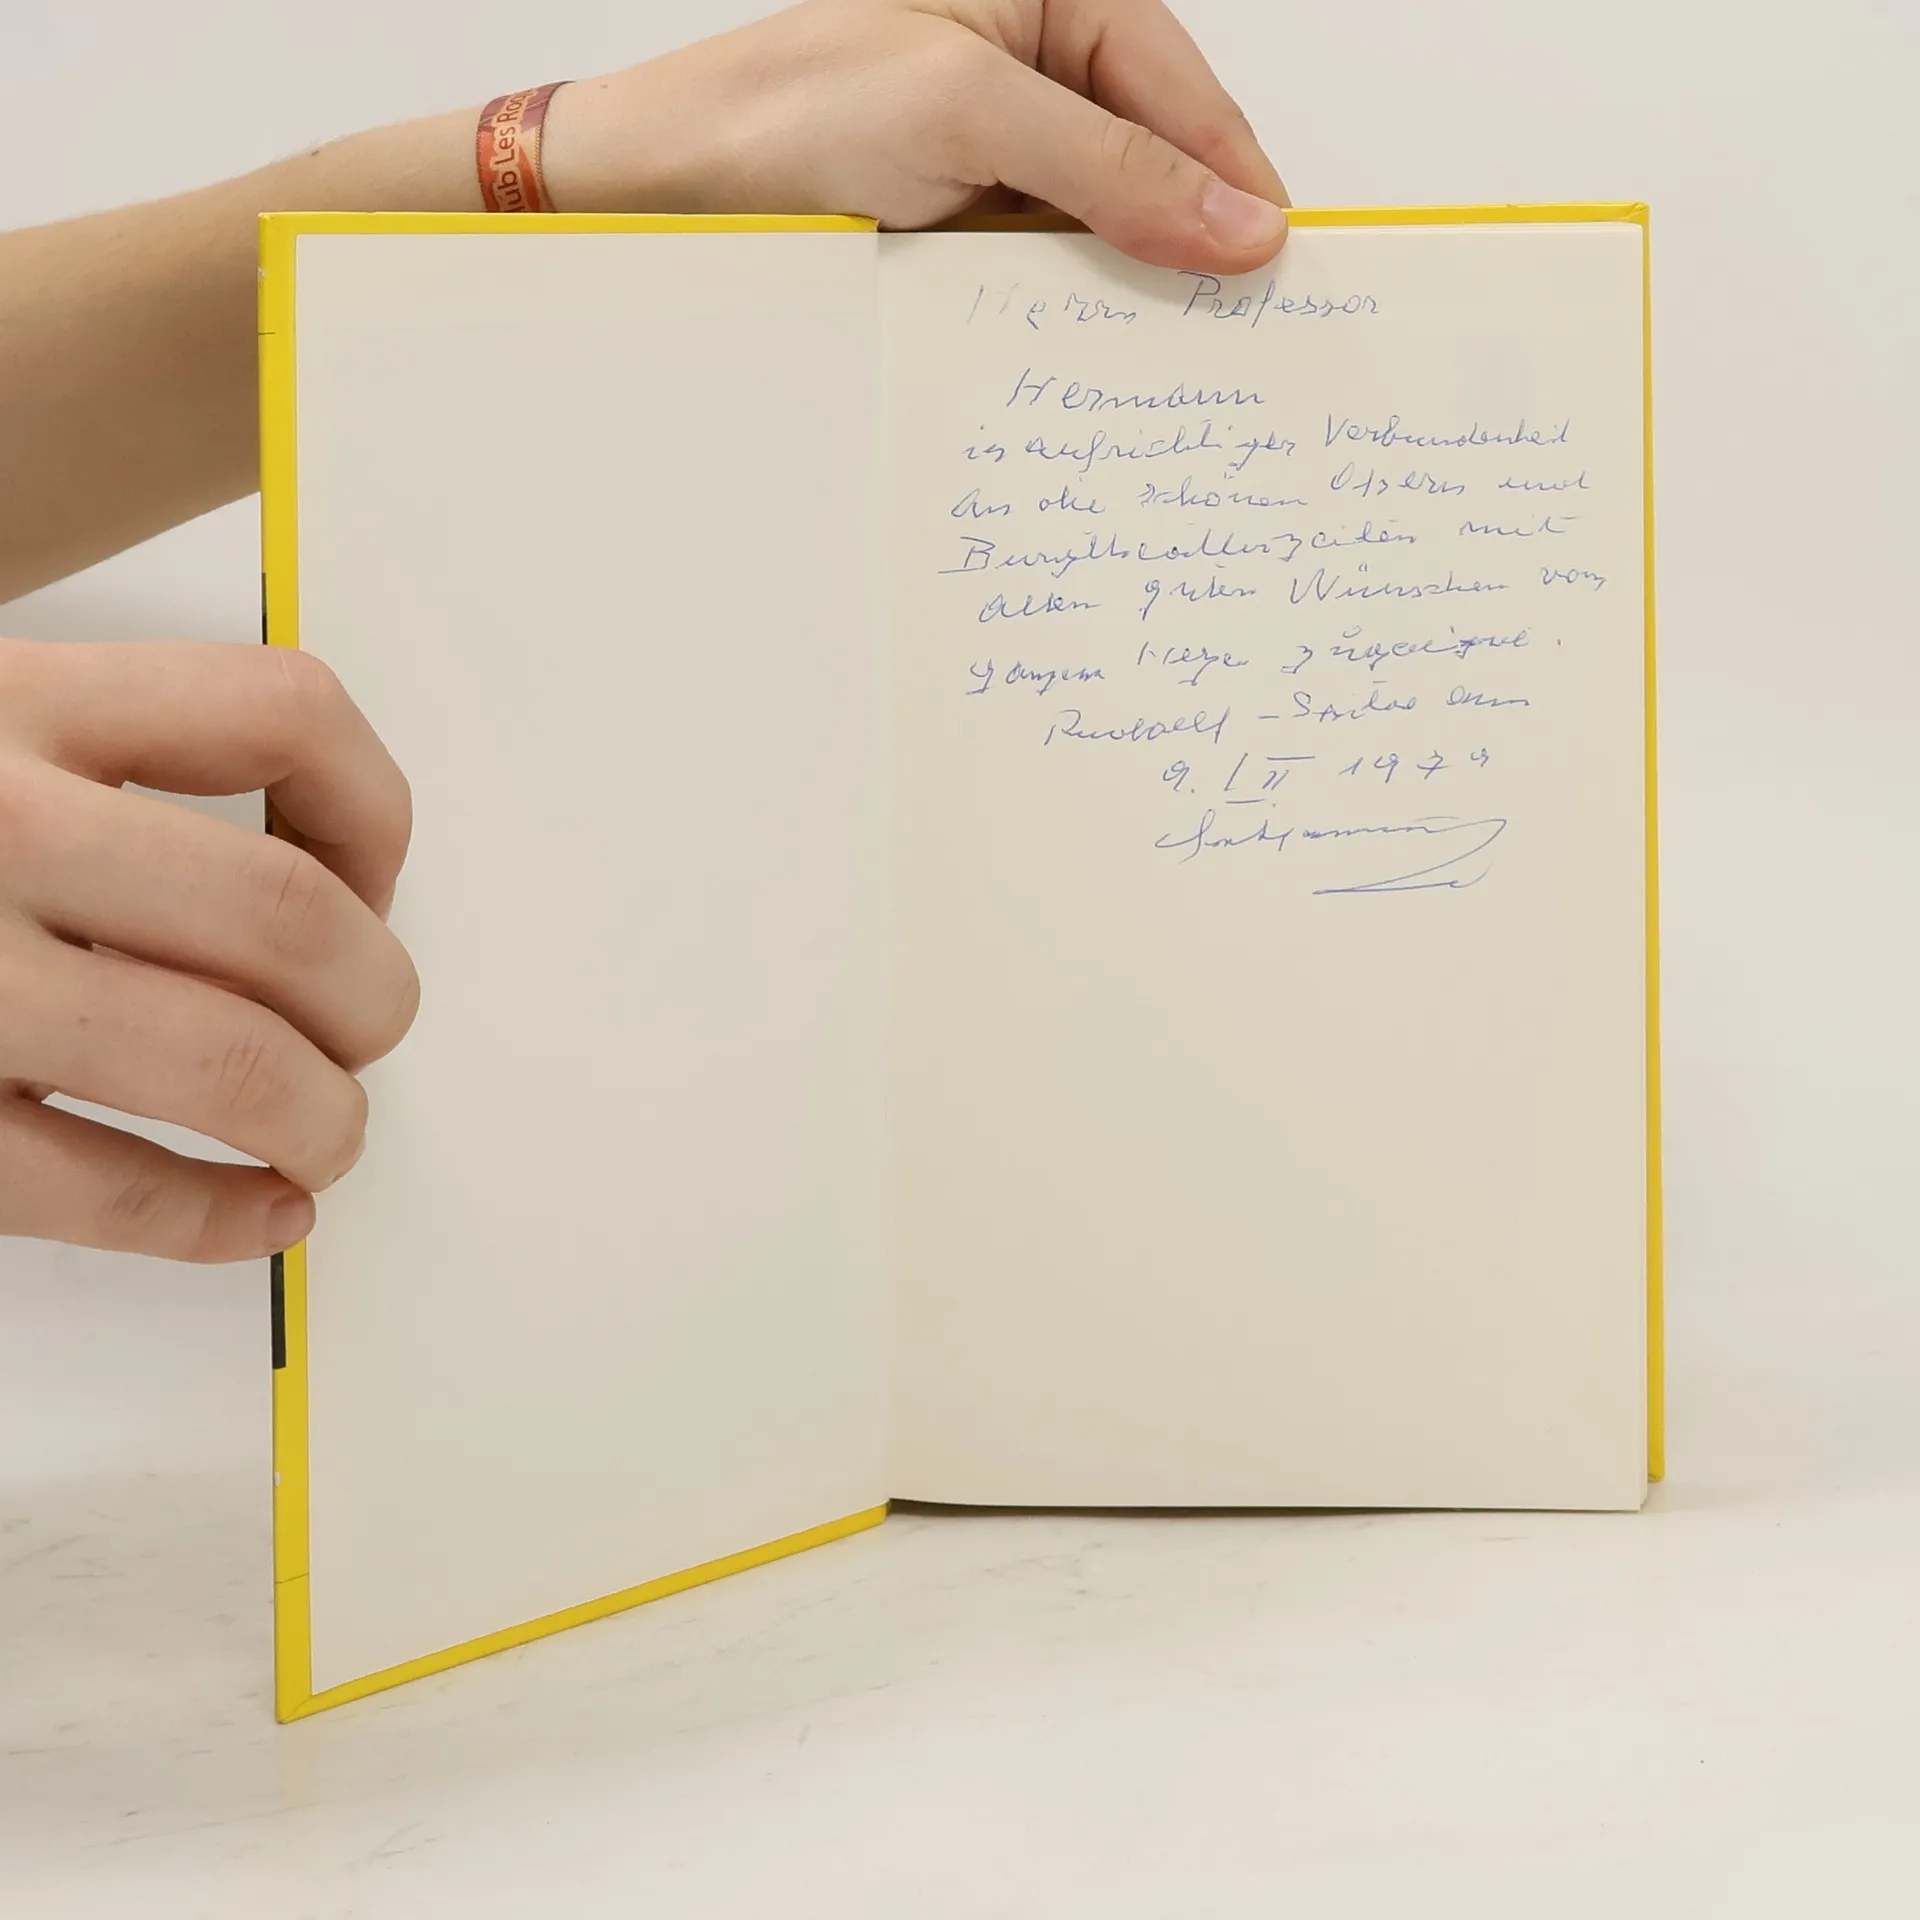 ub Les Roq
Herrn Professor
Hermann
in aufrichtiger Verbundenheit
an die schönen Opern und
Burgtheaterzeiten mit
allen guten Wünschen von
ganzem Herzen zugeeignet.
Rudolf
9. III 1979